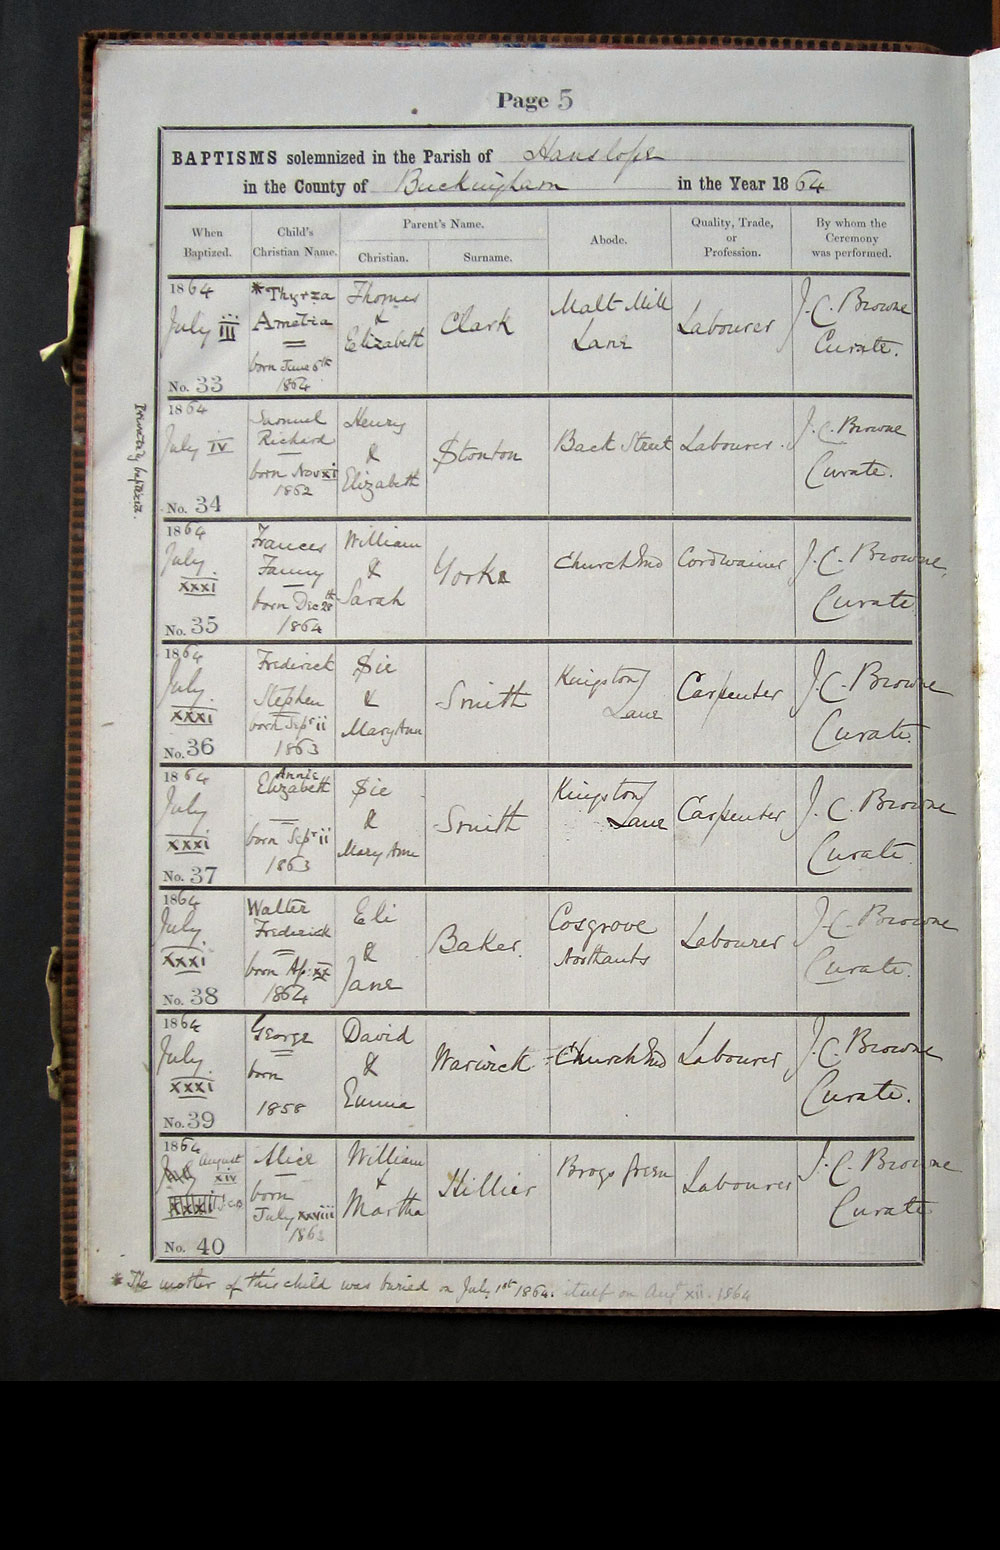 Page 5
BAPTISMS solemnized in the Parish of Hanslope
in the County of Buckingham in the Year 1864
When Baptized.
Child's Christian Name.
Parent's Name.
Christian.
Surname.
Abode.
Quality, Trade, or Profession.
By whom the Ceremony was performed.
1864
July III
No. 33
* Thyrza
Amelia
born June 6th
1864
Thomas
&
Elizabeth
Clark
Malt Mill
Lane
Labourer
J. C. Browne
Curate.
Privately baptized.
1864
July IV
No. 34
Samuel
Richard
born Nov XI
1862
Henry
&
Elizabeth
Stonton
Back Street
Labourer.
J. C. Browne
Curate.
1864
July.
XXXI
No. 35
Frances
Fanny
born Dec 28th
1864
William
&
Sarah
Yorke
Church End
Cordwainer
J. C. Browne,
Curate
1864
July.
XXXI
No. 36
Frederick
Stephen
born Sepr ii
1863
Sie
&
Mary Ann
Smith
Kingston
Lane
Carpenter
J. C. Browne
Curate.
1864
July
XXXI
No. 37
Annie
Elizabeth
born Sepr ii
1863
Sie
&
Mary Ann
Smith
Kingston
Lane
Carpenter
J. C. Browne
Curate.
1864
July
XXXI
No. 38
Walter
Frederick
born Ap. XX
1864
Eli
&
Jane
Baker.
Cosgrove
Northants
Labourer
J. C. Browne
Curate.
1864
July.
XXXI
No. 39
George
born
1858
David
&
Emma
Warwick
Church End
Labourer
J. C. Browne
Curate.
1864
July August
XIV
XXXI
No. 40
Alice
born
July XXVIII
William
&
Martha
Hillier
Labourer
J. C. Browne
Curate
* The mother of this child was buried on July 1st 1864. itself on Augt XII. 1864